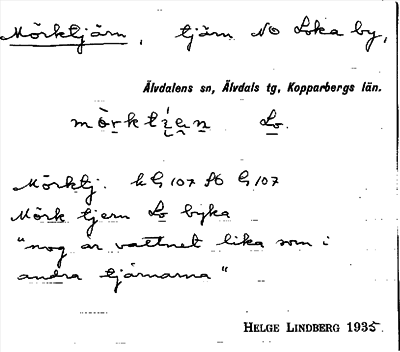 Mörktjärn, tjärn NO Loka by,
Älvdalens sn, Älvdals tg, Kopparbergs län.
Lo.
Mörktj. k G 107 G 107
Mörk tjern Lo byka
"nog är vattnet lika som i
andra tjärnarna"
HELGE LINDBERG 1935.